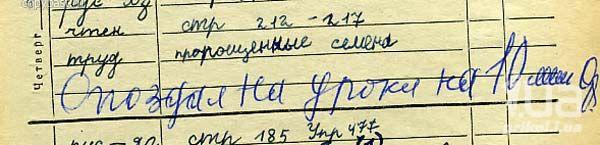 рус яз
Четверг
чтен стр 212-217
труд пророщенные семена
Опоздал на уроки на 10 мин
рус-яз стр 185 Упр 477